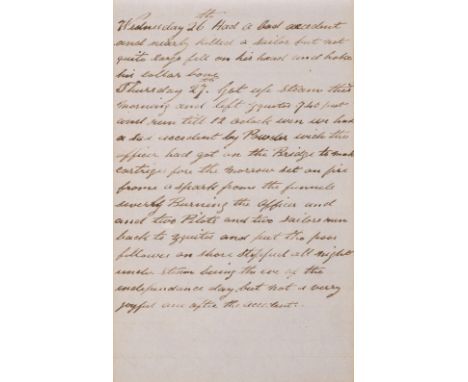 Wednesday 26th Had a bad accedent
and nearly killed a sailor but not
quite cargo fell on his head and broke
his collar bone
Thursday 27th. Got up steam this
morning and left yquitos 9 30 put
and run till 12 oclock wen we had
a sad accedent by Powder wich the
officer had got on the Bridge to make
cartriges fore the morrow set on fire
frome a spark from the funnele
severly Burning the officer and
and two Pilots and two sailors run
back to yquitos and put the poor
fellowes on shore stopped all night
under steam being the eve of the
independance day but not a very
joyful one after the accedent.